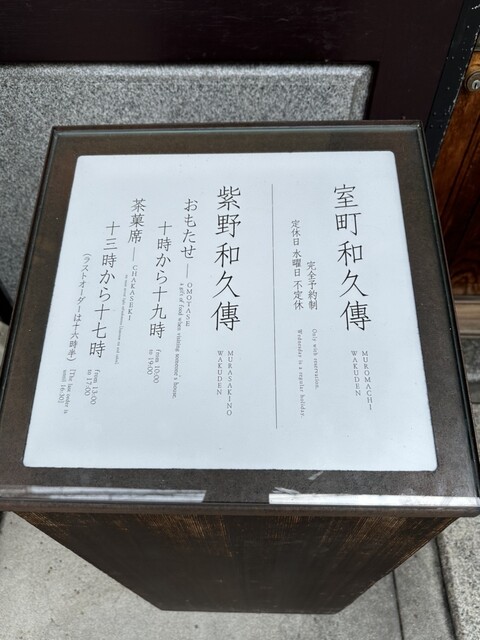 室町和久傳
MUROMACHI
WAKUDEN
完全予約制
Only with reservation.
定休日 水曜日 不定休
Wednesday is a regular holiday.
紫野和久傳
MURASAKINO
WAKUDEN
おもたせ — OMOTASE
a gift of food when visiting someone's house.
十時から十九時
from 10:00
to 19:00
茶菓席 — CHAKASEKI
十三時から十七時
from 13:00
to 17:00
(ラストオーダーは十六時半)
[The last order is
until 16:30]